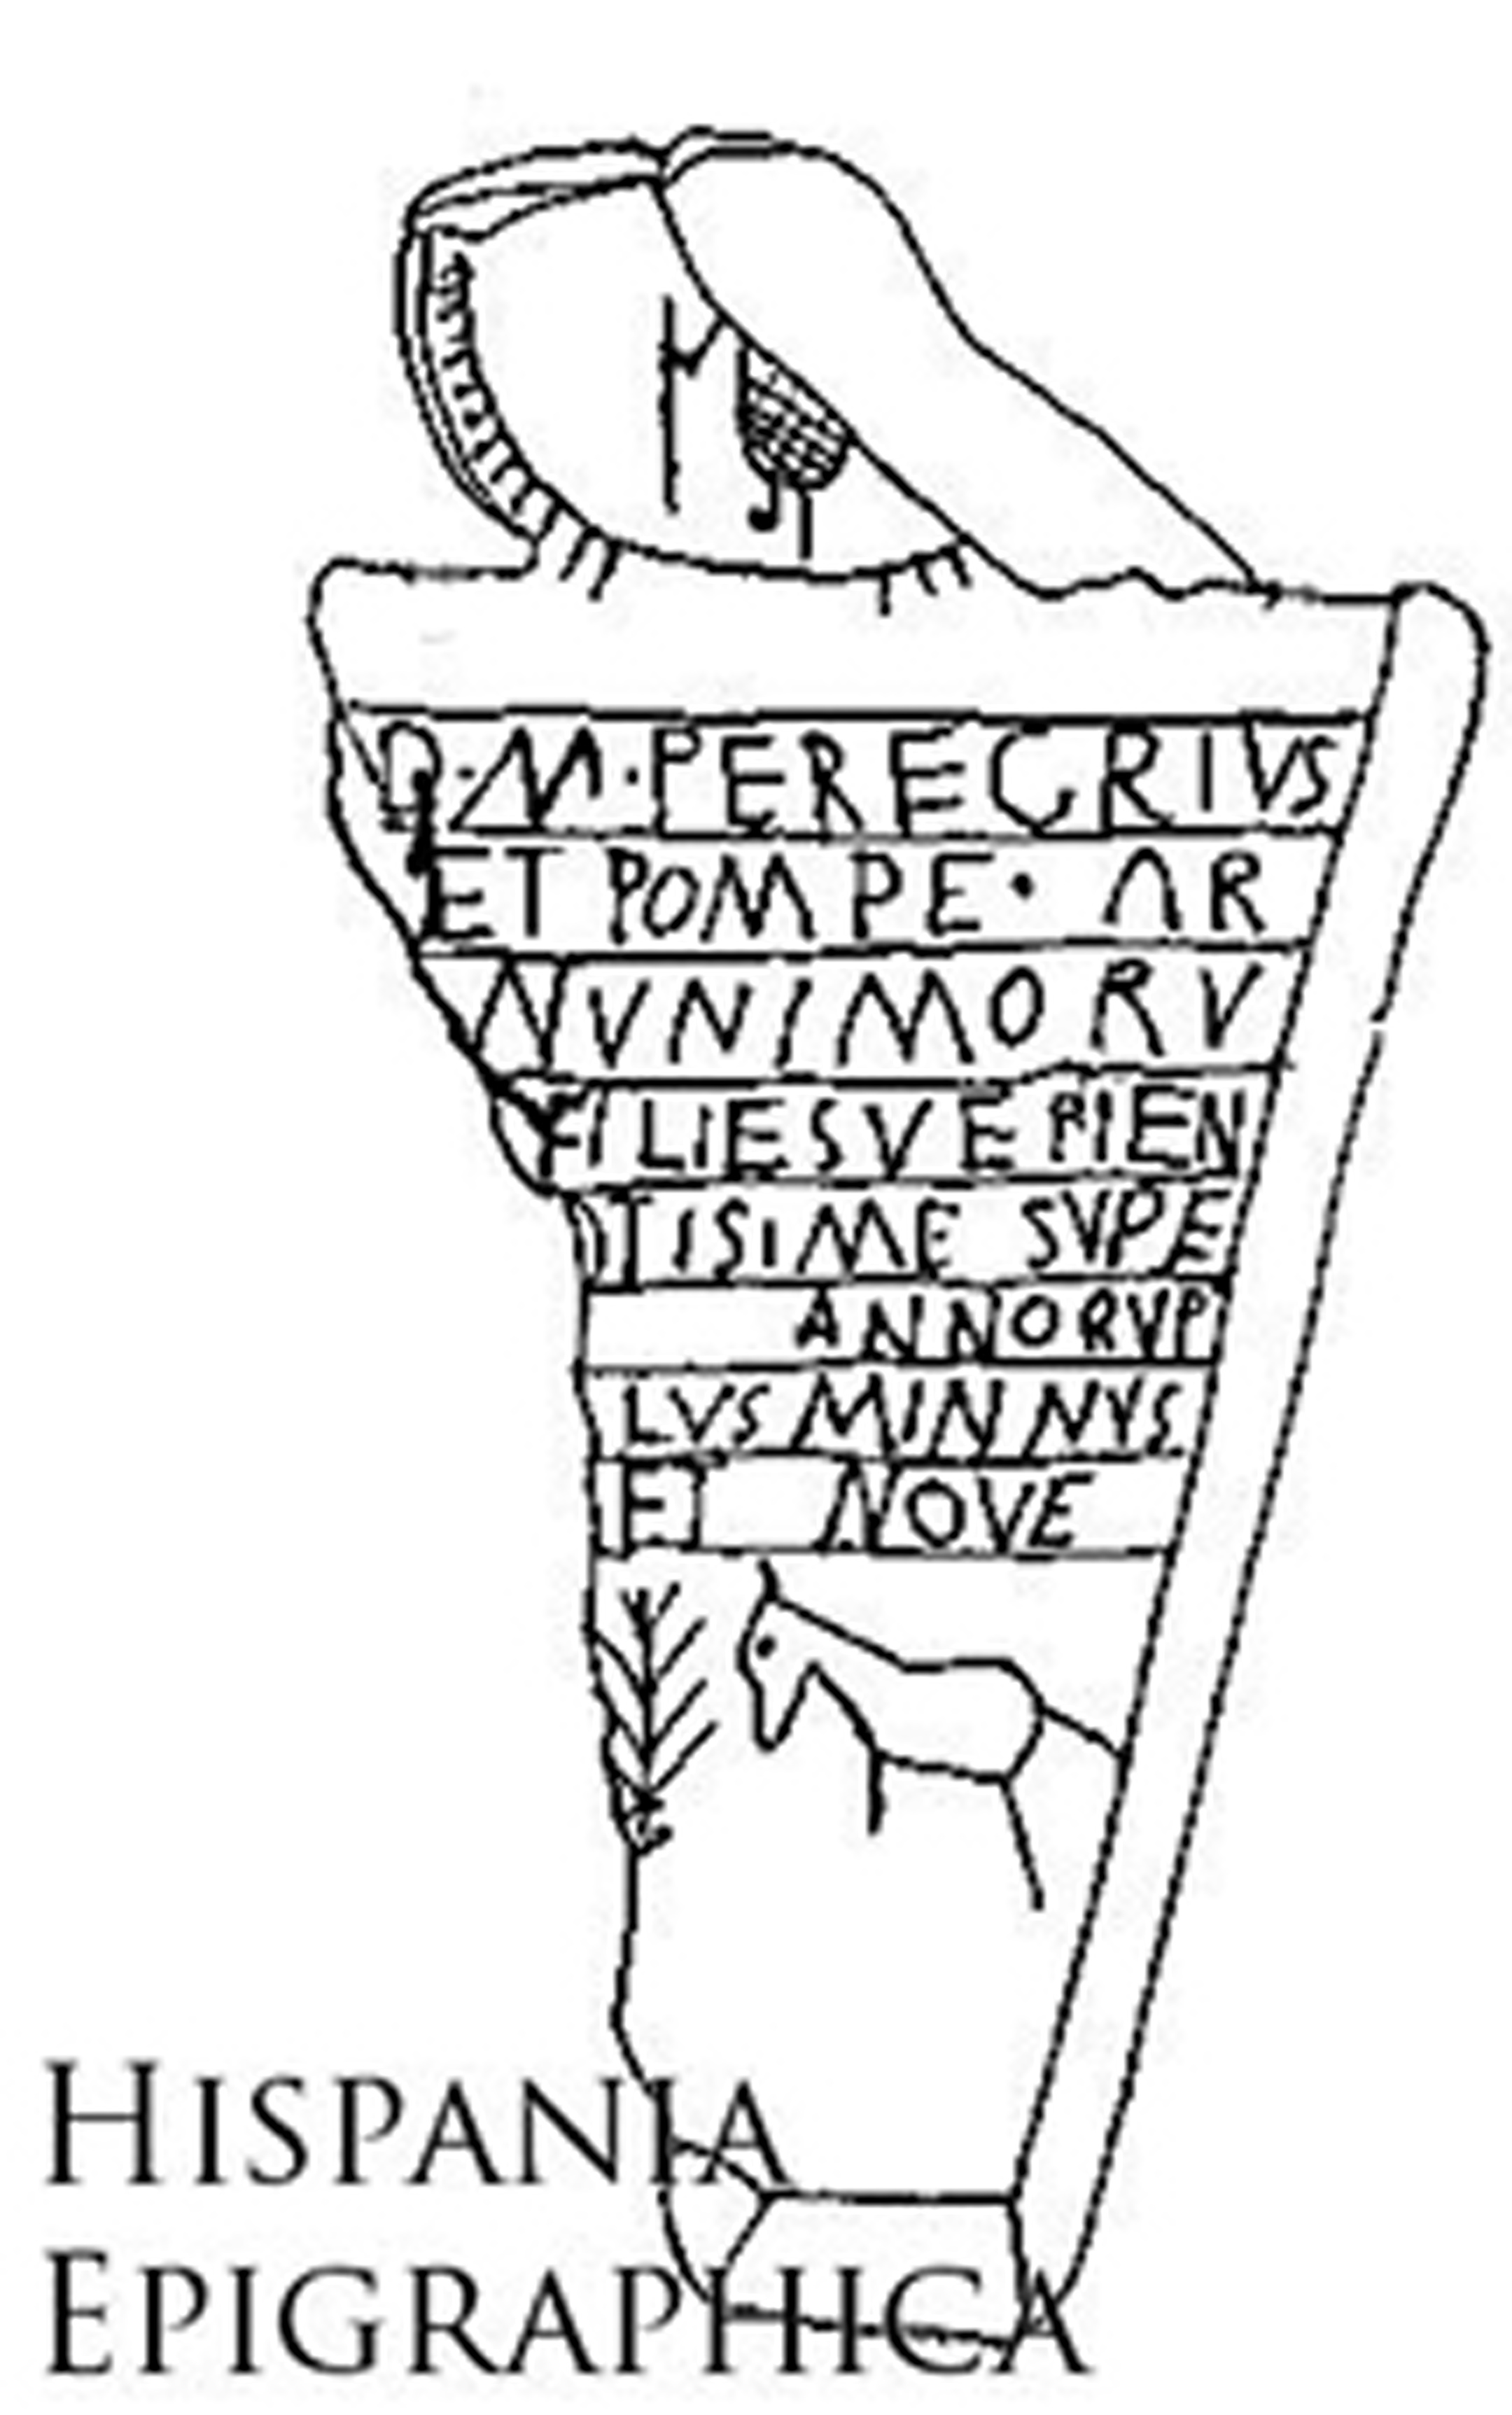 D·M·PEREGRIVS
ET POMPE· AR
NVNIMORV
FILIESVE PIEN
TISIME SVPE
ANNORVP
LVSMINNVS
ET NOVE
HISPANIA
EPIGRAPHICA